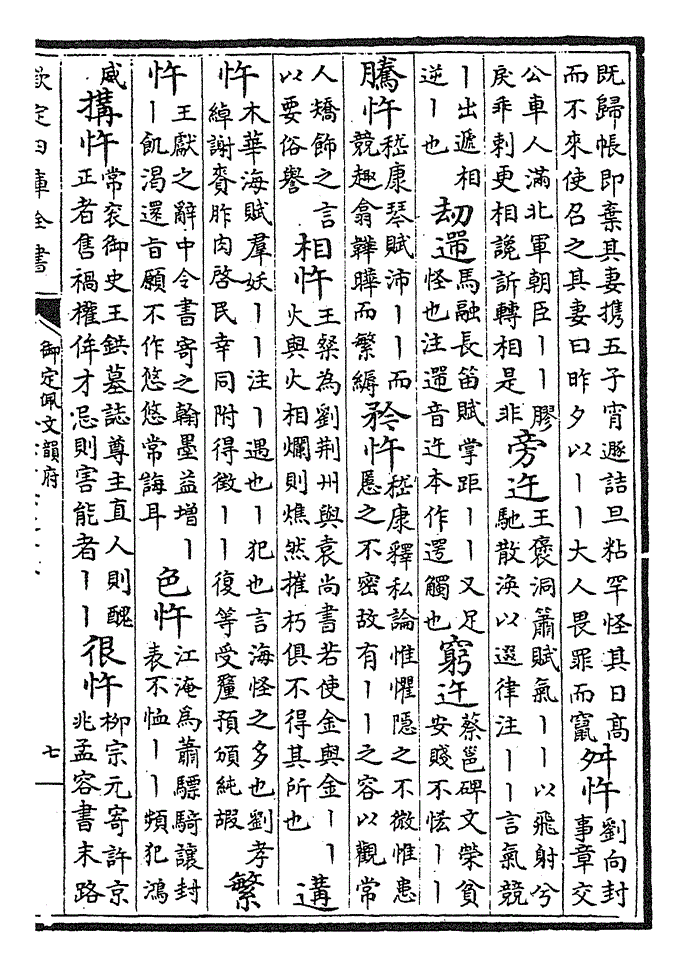 既歸帳即棄其妻携五子宵遯詰旦粘罕怪其日高
而不來使召之其妻曰昨夕以丨丨大人畏罪而竄
舛忤
劉向封
事章交
公車人滿北軍朝臣丨丨膠
戾乖剌更相讒訴轉相是非
旁迕
王褒洞簫賦氣丨丨以飛射兮
馳散渙以逫律注丨丨言氣競
丨出遞相
逆丨也
劫遻
馬融長笛賦掌距丨丨又足
怪也注遻音迕本作遌觸也
窮迕
蔡邕碑文榮貧
安賤不怰丨丨
騰忤
嵇康琴賦沛丨丨而
競趣翕韡曄而繁縟
矜忤
嵇康釋私論惟懼隱之不微惟患
慝之不密故有丨丨之容以觀常
人矯飾之言
以要俗譽
相忤
王粲為劉荆州與袁尚書若使金與金丨丨
火與火相爛則燋然摧朽俱不得其所也
遘
忤
木華海賦羣妖丨丨注丨遇也丨犯也言海怪之多也劉孝
綽謝賚胙肉啓民幸同附得徵丨丨復等受釐預頒純嘏
繁
忤
王獻之辭中令書寄之翰墨益增丨
丨飢渴還旨願不作悠悠常誨耳
色忤
江淹為蕭驃騎讓封
表不恤丨丨頻犯鴻
威
搆忤
常衮御史王鉷墓誌尊主直人則醜
正者售禍權侔才忌則害能者丨丨
很忤
柳宗元寄許京
兆孟容書末路
欽定四庫全書
御定佩文韻府
七